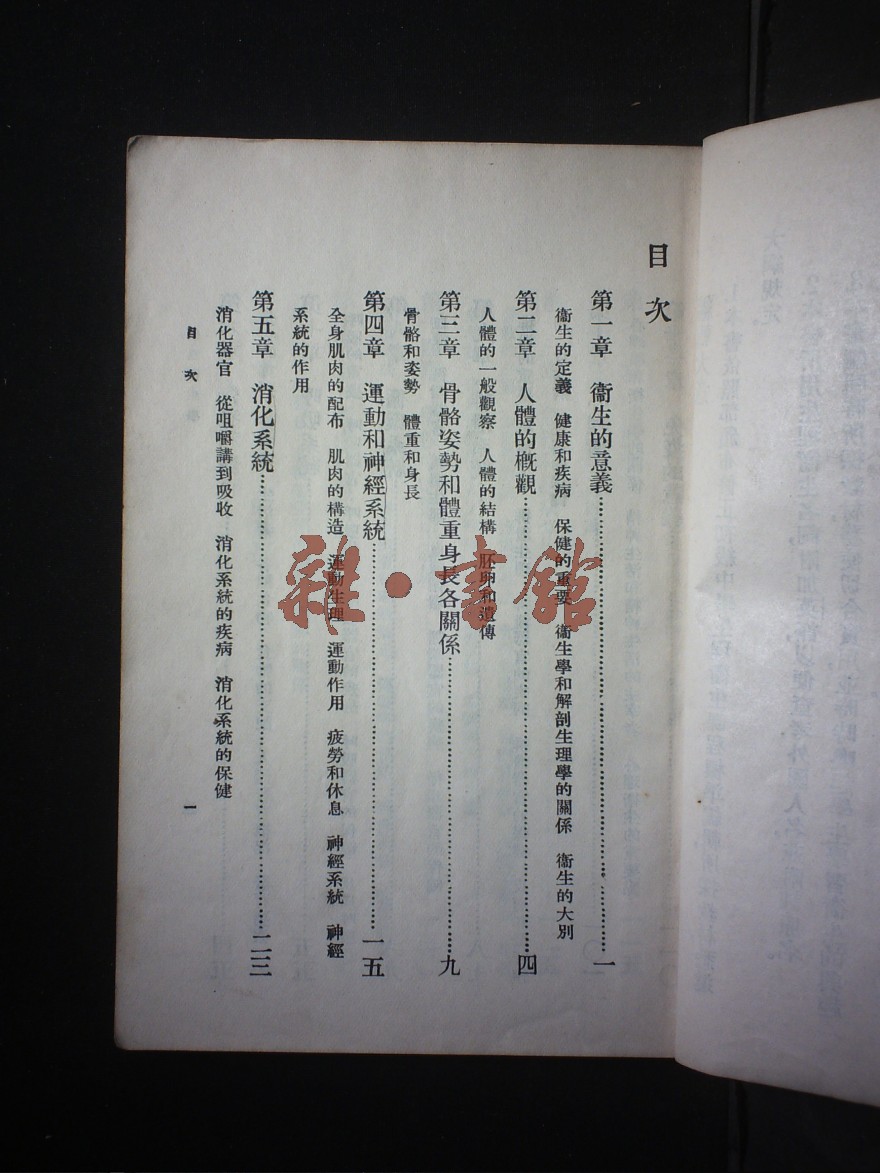 目次
第一章　衞生的意義……一
衞生的定義　健康和疾病　保健的重要　衞生學和解剖生理學的關係　衞生的大別
第二章　人體的概觀……四
人體的一般觀察　人體的結構　胚卵和遺傳
第三章　骨骼姿勢和體重身長各關係……九
骨骼和姿勢　體重和身長
第四章　運動和神經系統……一五
全身肌肉的配布　肌肉的構造　運動生理　運動作用　疲勞和休息　神經系統　神經
系統的作用
第五章　消化系統……二三
消化器官　從咀嚼講到吸收　消化系統的疾病　消化系統的保健
目次
一
雜·書館